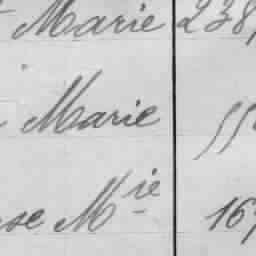 Marie 238
Marie 55
se Mie 167